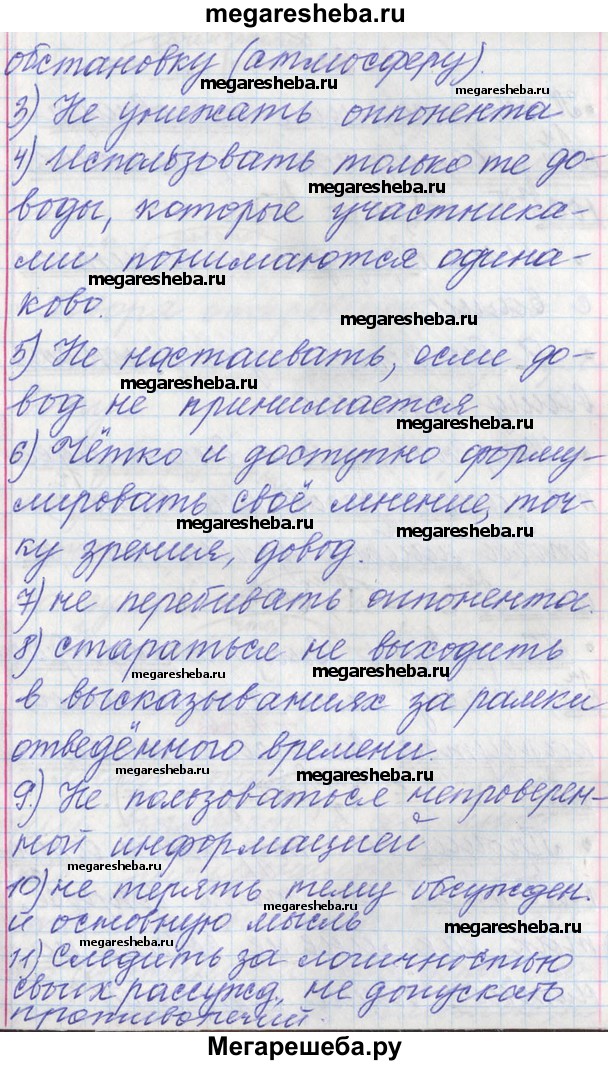 megaresheba.ru
обстановку (атмосферу).
megaresheba.ru
megaresheba.ru
3) Не унижать оппонента
4) Использовать только те до-
megaresheba.ru
воды, которые участника-
ми понимаются одина-
megaresheba.ru
ково.
megaresheba.ru
5) Не настаивать, если до-
megaresheba.ru
вод не принимается
megaresheba.ru
6) Чётко и доступно форму-
лировать своё мнение, точ-
megaresheba.ru
megaresheba.ru
ку зрения, довод.
7) не перебивать оппонента.
8) стараться не выходить
megaresheba.ru
megaresheba.ru
в высказываниях за рамки
отведённого времени.
megaresheba.ru
megaresheba.ru
9.) Не пользоваться непроверен-
ной информацией
megaresheba.ru
10) не терять тему обсужден.
и основную мысль
megaresheba.ru
megaresheba.ru
11) Следить за логичностью
своих рассужд., не допускать
противоречий.
Мегарешеба.ру